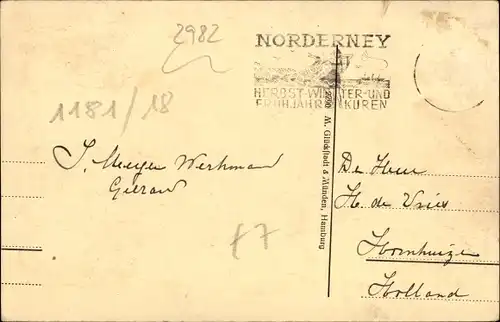 2982
NORDERNEY
HERBST-WINTER-UND
FRÜHJAHRSKUREN
1181/18
M. Glückstadt & Münden, Hamburg
S. Meyer Werkman
De Heer
H. de Vries
Hornhuizen
Holland
f 7